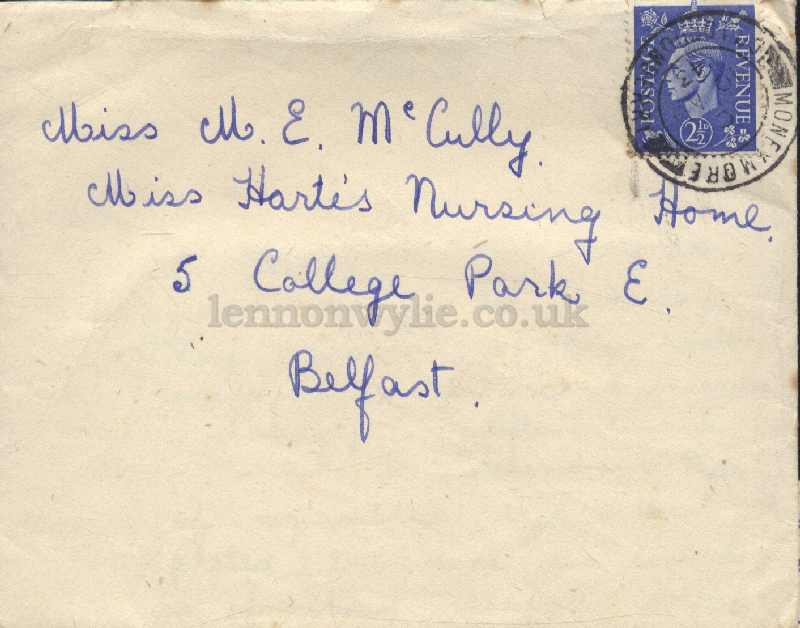 POSTAGE REVENUE
2½D
MONEYMORE
Miss M. E. McCully.
Miss Harte's Nursing Home.
5 College Park E.
lennonwylie.co.uk
Belfast.